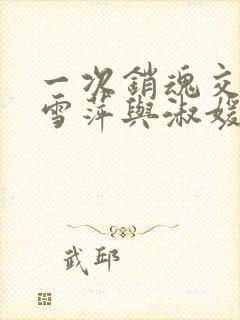 一次銷魂交
雪萍與淑媛
武邱